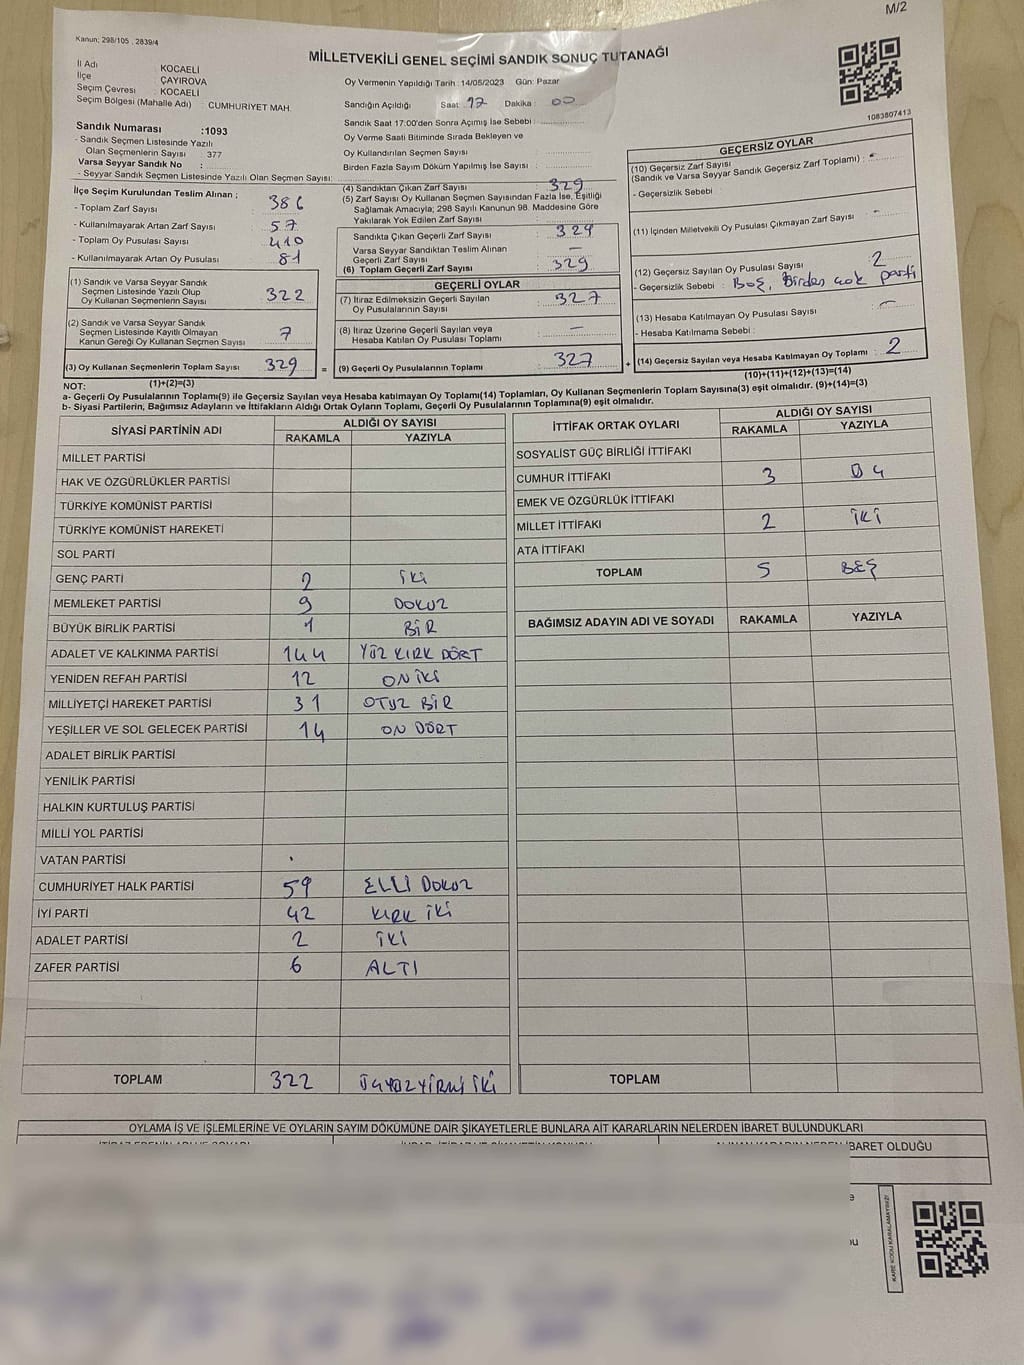 M/2
Kanun; 298/105 , 2839/4
MİLLETVEKİLİ GENEL SEÇİMİ SANDIK SONUÇ TUTANAĞI
İl Adı KOCAELİ
İlçe ÇAYIROVA
Seçim Çevresi : KOCAELİ
Seçim Bölgesi (Mahalle Adı) : CUMHURIYET MAH.
Oy Vermenin Yapıldığı Tarih : 14/05/2023 Gün: Pazar
Sandığın Açıldığı Saat: 17 Dakika : 00
Sandık Saat 17:00'den Sonra Açımış İse Sebebi :
Oy Verme Saati Bitiminde Sırada Bekleyen ve
Oy Kullandırılan Seçmen Sayısı
Birden Fazla Sayım Döküm Yapılmış İse Sayısı :
1083807413
Sandık Numarası :1093
- Sandık Seçmen Listesinde Yazılı
Olan Seçmenlerin Sayısı : 377
Varsa Seyyar Sandık No :
- Seyyar Sandık Seçmen Listesinde Yazılı Olan Seçmen Sayısı:
İlçe Seçim Kurulundan Teslim Alınan ;
- Toplam Zarf Sayısı : 386
- Kullanılmayarak Artan Zarf Sayısı : 57
- Toplam Oy Pusulası Sayısı : 410
- Kullanılmayarak Artan Oy Pusulası : 81
(1) Sandık ve Varsa Seyyar Sandık
Seçmen Listesinde Yazılı Olup
Oy Kullanan Seçmenlerin Sayısı : 322
(2) Sandık ve Varsa Seyyar Sandık
Seçmen Listesinde Kayıtlı Olmayan
Kanun Gereği Oy Kullanan Seçmen Sayısı : 7
(3) Oy Kullanan Seçmenlerin Toplam Sayısı : 329
(1)+(2)=(3)
(4) Sandıktan Çıkan Zarf Sayısı : 329
(5) Zarf Sayısı Oy Kullanan Seçmen Sayısından Fazla İse, Eşitliği
Sağlamak Amacıyla; 298 Sayılı Kanunun 98. Maddesine Göre
Yakılarak Yok Edilen Zarf Sayısı :
Sandıkta Çıkan Geçerli Zarf Sayısı : 329
Varsa Seyyar Sandıktan Teslim Alınan
Geçerli Zarf Sayısı : —
(6) Toplam Geçerli Zarf Sayısı : 329
GEÇERLİ OYLAR
(7) İtiraz Edilmeksizin Geçerli Sayılan
Oy Pusulalarının Sayısı : 327
(8) İtiraz Üzerine Geçerli Sayılan veya
Hesaba Katılan Oy Pusulası Toplamı : —
= (9) Geçerli Oy Pusulalarının Toplamı : 327 +
GEÇERSİZ OYLAR
(10) Geçersiz Zarf Sayısı
(Sandık ve Varsa Seyyar Sandık Geçersiz Zarf Toplamı) : -
- Geçersizlik Sebebi :
(11) İçinden Milletvekili Oy Pusulası Çıkmayan Zarf Sayısı : -
(12) Geçersiz Sayılan Oy Pusulası Sayısı : 2
- Geçersizlik Sebebi : Boş, Birden çok parti
(13) Hesaba Katılmayan Oy Pusulası Sayısı : —
- Hesaba Katılmama Sebebi :
(14) Geçersiz Sayılan veya Hesaba Katılmayan Oy Toplamı : 2
(10)+(11)+(12)+(13)=(14)
NOT:
a- Geçerli Oy Pusulalarının Toplamı(9) ile Geçersiz Sayılan veya Hesaba katılmayan Oy Toplamı(14) Toplamları, Oy Kullanan Seçmenlerin Toplam Sayısına(3) eşit olmalıdır. (9)+(14)=(3)
b- Siyasi Partilerin, Bağımsız Adayların ve İttifakların Aldığı Ortak Oyların Toplamı, Geçerli Oy Pusulalarının Toplamına(9) eşit olmalıdır.
SİYASİ PARTİNİN ADI ALDIĞI OY SAYISI
RAKAMLA YAZIYLA
MİLLET PARTİSİ
HAK VE ÖZGÜRLÜKLER PARTİSİ
TÜRKİYE KOMÜNİST PARTİSİ
TÜRKİYE KOMÜNİST HAREKETİ
SOL PARTİ
GENÇ PARTİ 2 İKİ
MEMLEKET PARTİSİ 9 DOKUZ
BÜYÜK BİRLİK PARTİSİ 1 BİR
ADALET VE KALKINMA PARTİSİ 144 YÜZ KIRK DÖRT
YENİDEN REFAH PARTİSİ 12 ON İKİ
MİLLİYETÇİ HAREKET PARTİSİ 31 OTUZ BİR
YEŞİLLER VE SOL GELECEK PARTİSİ 14 ON DÖRT
ADALET BİRLİK PARTİSİ
YENİLİK PARTİSİ
HALKIN KURTULUŞ PARTİSİ
MİLLİ YOL PARTİSİ
VATAN PARTİSİ
CUMHURİYET HALK PARTİSİ 59 ELLİ DOKUZ
İYİ PARTİ 42 KIRK İKİ
ADALET PARTİSİ 2 İKİ
ZAFER PARTİSİ 6 ALTI
TOPLAM 322 ÜÇYÜZYİRMİ İKİ
İTTİFAK ORTAK OYLARI ALDIĞI OY SAYISI
RAKAMLA YAZIYLA
SOSYALİST GÜÇ BİRLİĞİ İTTİFAKI
CUMHUR İTTİFAKI 3 ÜÇ
EMEK VE ÖZGÜRLÜK İTTİFAKI
MİLLET İTTİFAKI 2 İKİ
ATA İTTİFAKI
TOPLAM 5 BEŞ
BAĞIMSIZ ADAYIN ADI VE SOYADI RAKAMLA YAZIYLA
TOPLAM
OYLAMA İŞ VE İŞLEMLERİNE VE OYLARIN SAYIM DÖKÜMÜNE DAİR ŞİKAYETLERLE BUNLARA AİT KARARLARIN NELERDEN İBARET BULUNDUKLARI
İBARET OLDUĞU
KARE KODU KARALAMAYINIZ!